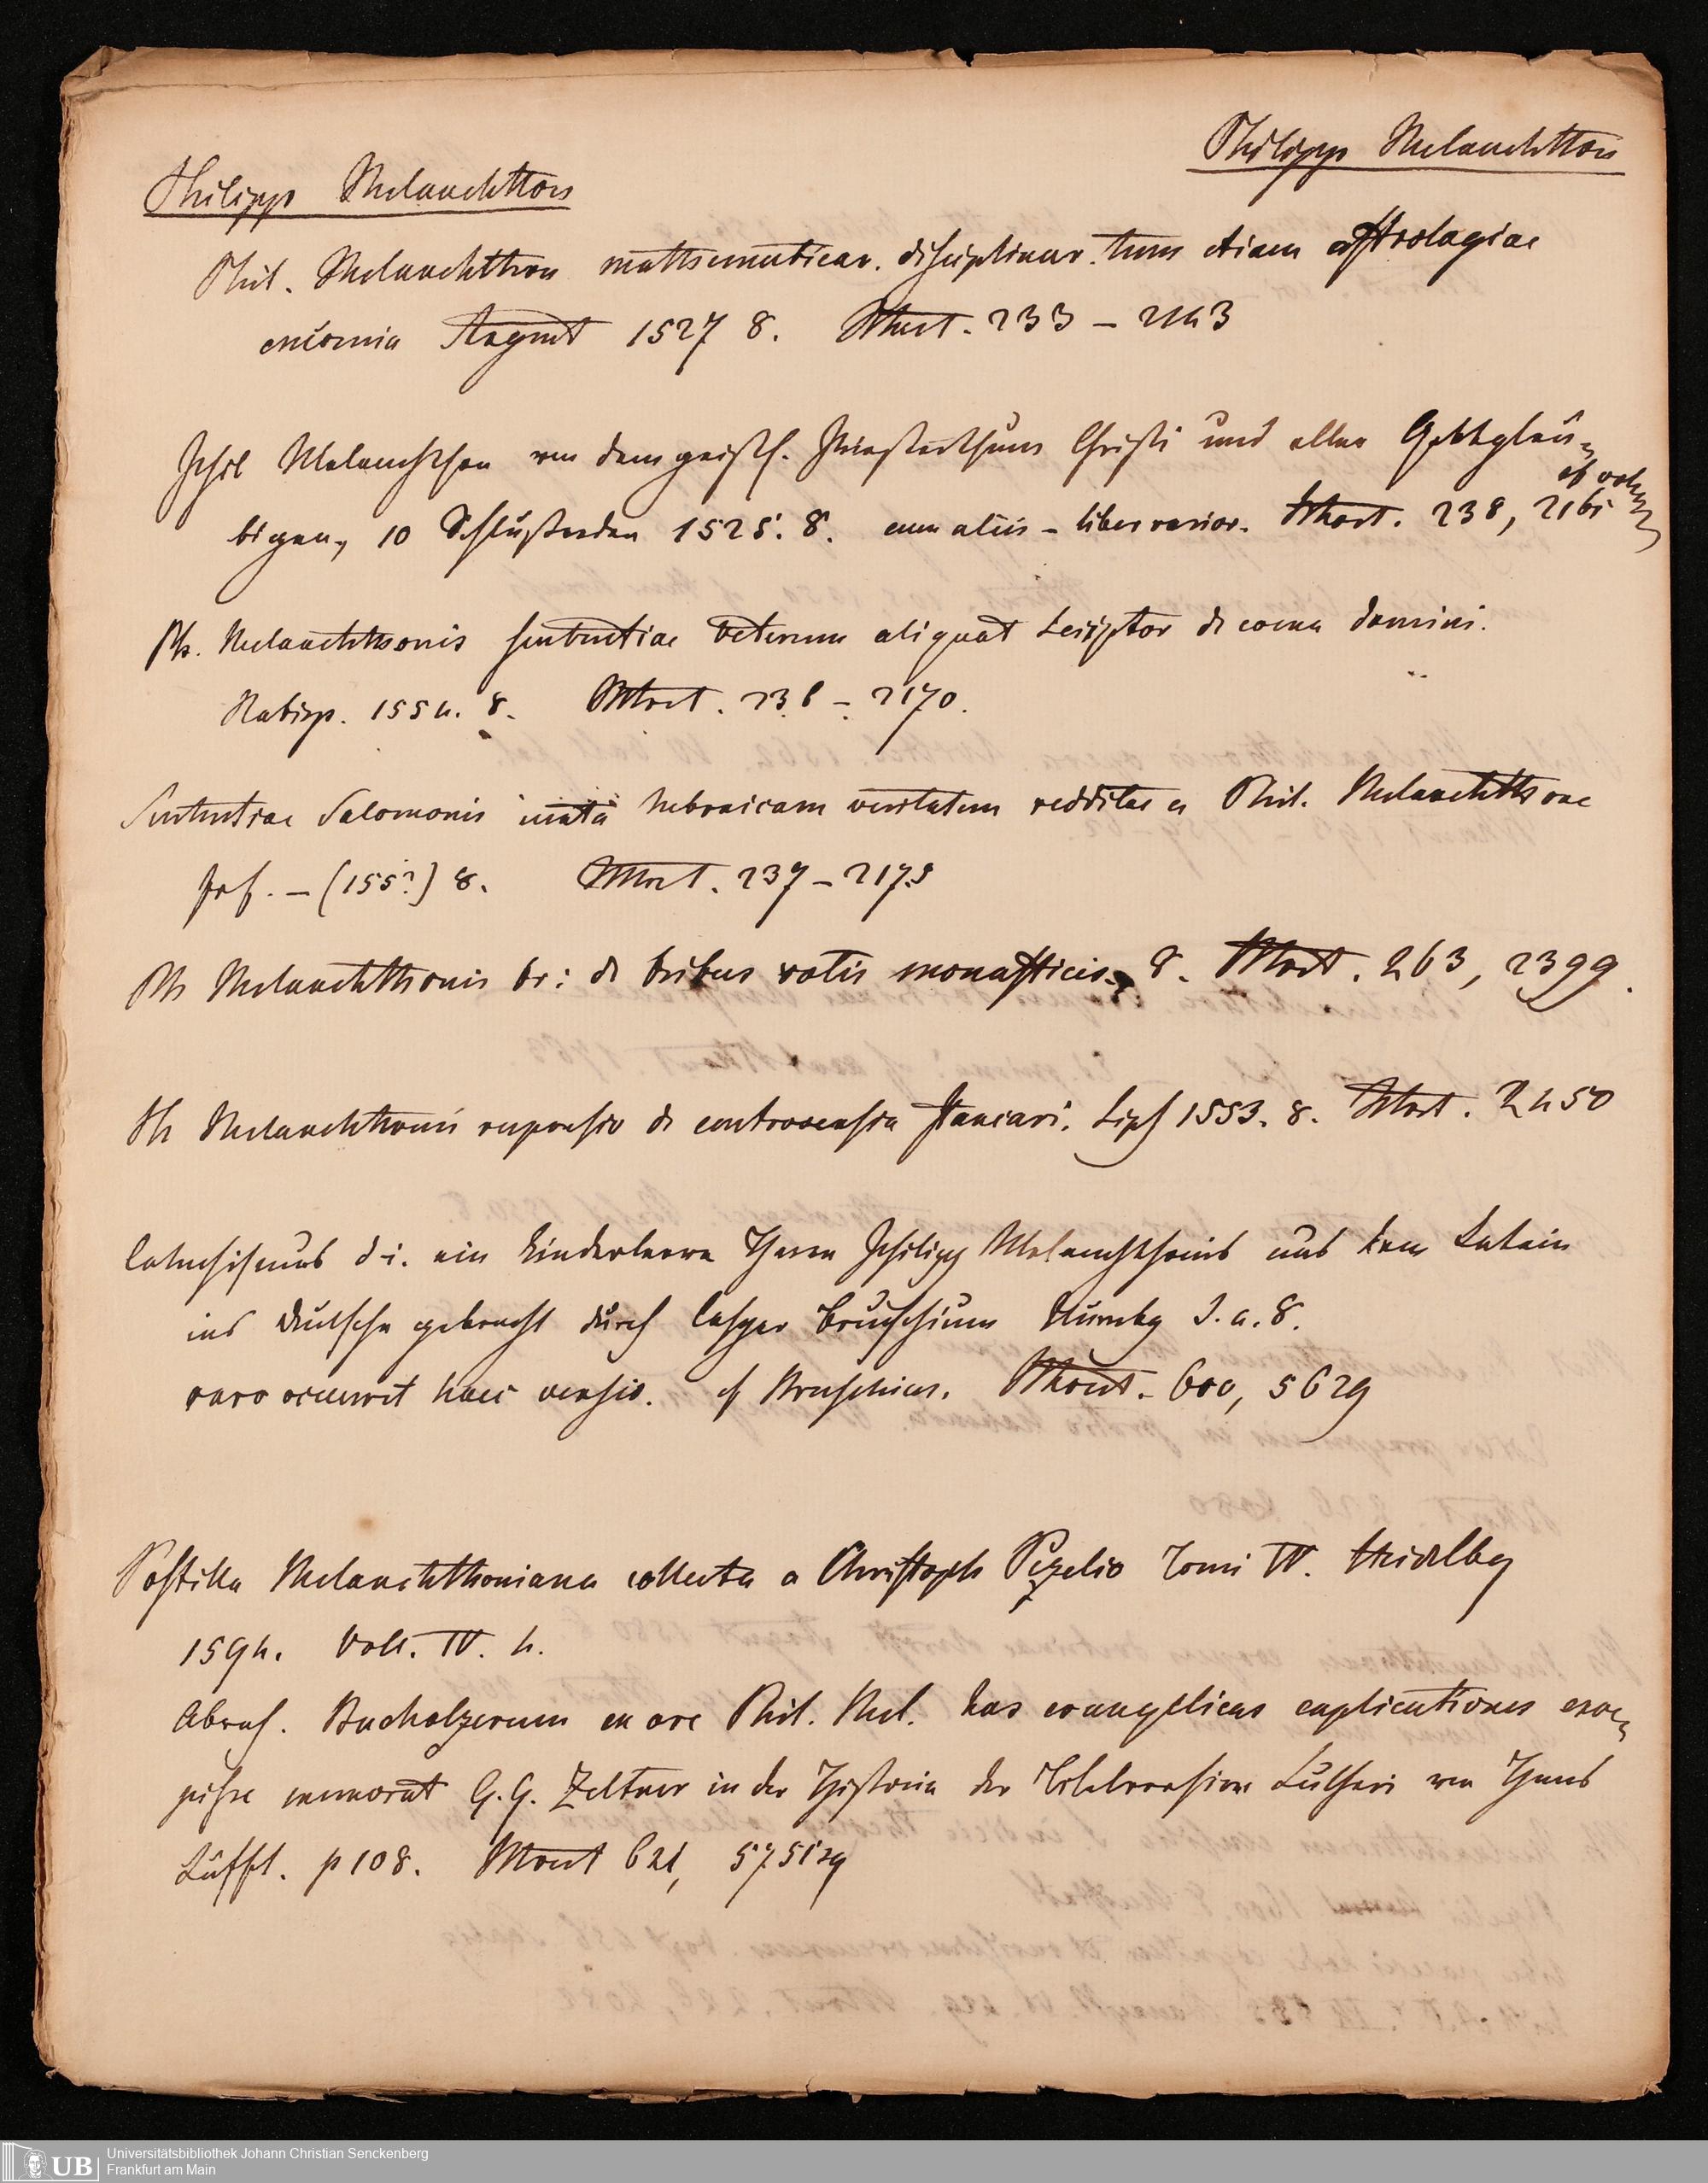 Philipp Melanchthon
Philipp Melanchthon
Phil. Melanchthon mathematicar. disciplinar. tum etiam astrologiae
encomia 1527 8. 233 – 2143
Phil Melanchthon von dem geistl. Priesterthum Christi und aller Gottgläu-
bigen, 10 Schlußreden 1525. 8. cum aliis – liber rarior. 238, 216
Ph. Melanchthonis sententiae veterum aliquot scriptor de coena domini.
Ratisp. 1554. 8. 236 – 2170.
Sententiae Salomonis iuxta hebraicam veritatem redditae a Phil. Melanchthone
(155?) 8. 237 – 2179
Ph Melanchthonis de tribus votis monasticis. 8. 263, 2399.
Ph Melanchthonis responsio de controversia Stancari. Lips 1553. 8. 2450
Catechismus d. i. ein Kinderleere Herrn Philipp Melanchthonis aus dem Latein
ins deutsche gebracht durch Casper Bruschium Nürnbg S. a. 8.
raro occurrit haec versio. cf Bruschius. 600, 5629
Postilla Melanchthoniana collecta a Christoph Pezelio Tomi IV. Heidelbg
1594. Voll. IV. 4.
Abrah. Bucholzerum ex ore Phil. Mel. has evangelicas explicationes exce-
pisse memorat G. G. Zeltner in der Historia der Bibelversion Lutheri von Hans
Lufft. p 108. 621, 5751